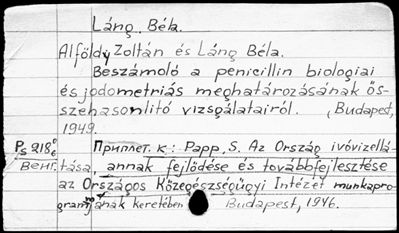 Láng, Béla.
Alföldy Zoltán és Láng Béla.
Beszámoló a penicillin biologiai
és jodometriás meghatározásának ös-
szehasonlitó vizsgálatairól. Budapest,
1949.
Приплет. к: Papp, S. Az Ország ivóvizellá-
Венг. tása, annak fejlődése és továbbfejlesztése
az Országos Közegészségügyi Intézet munkapro-
gramjának keretében Budapest, 1946.